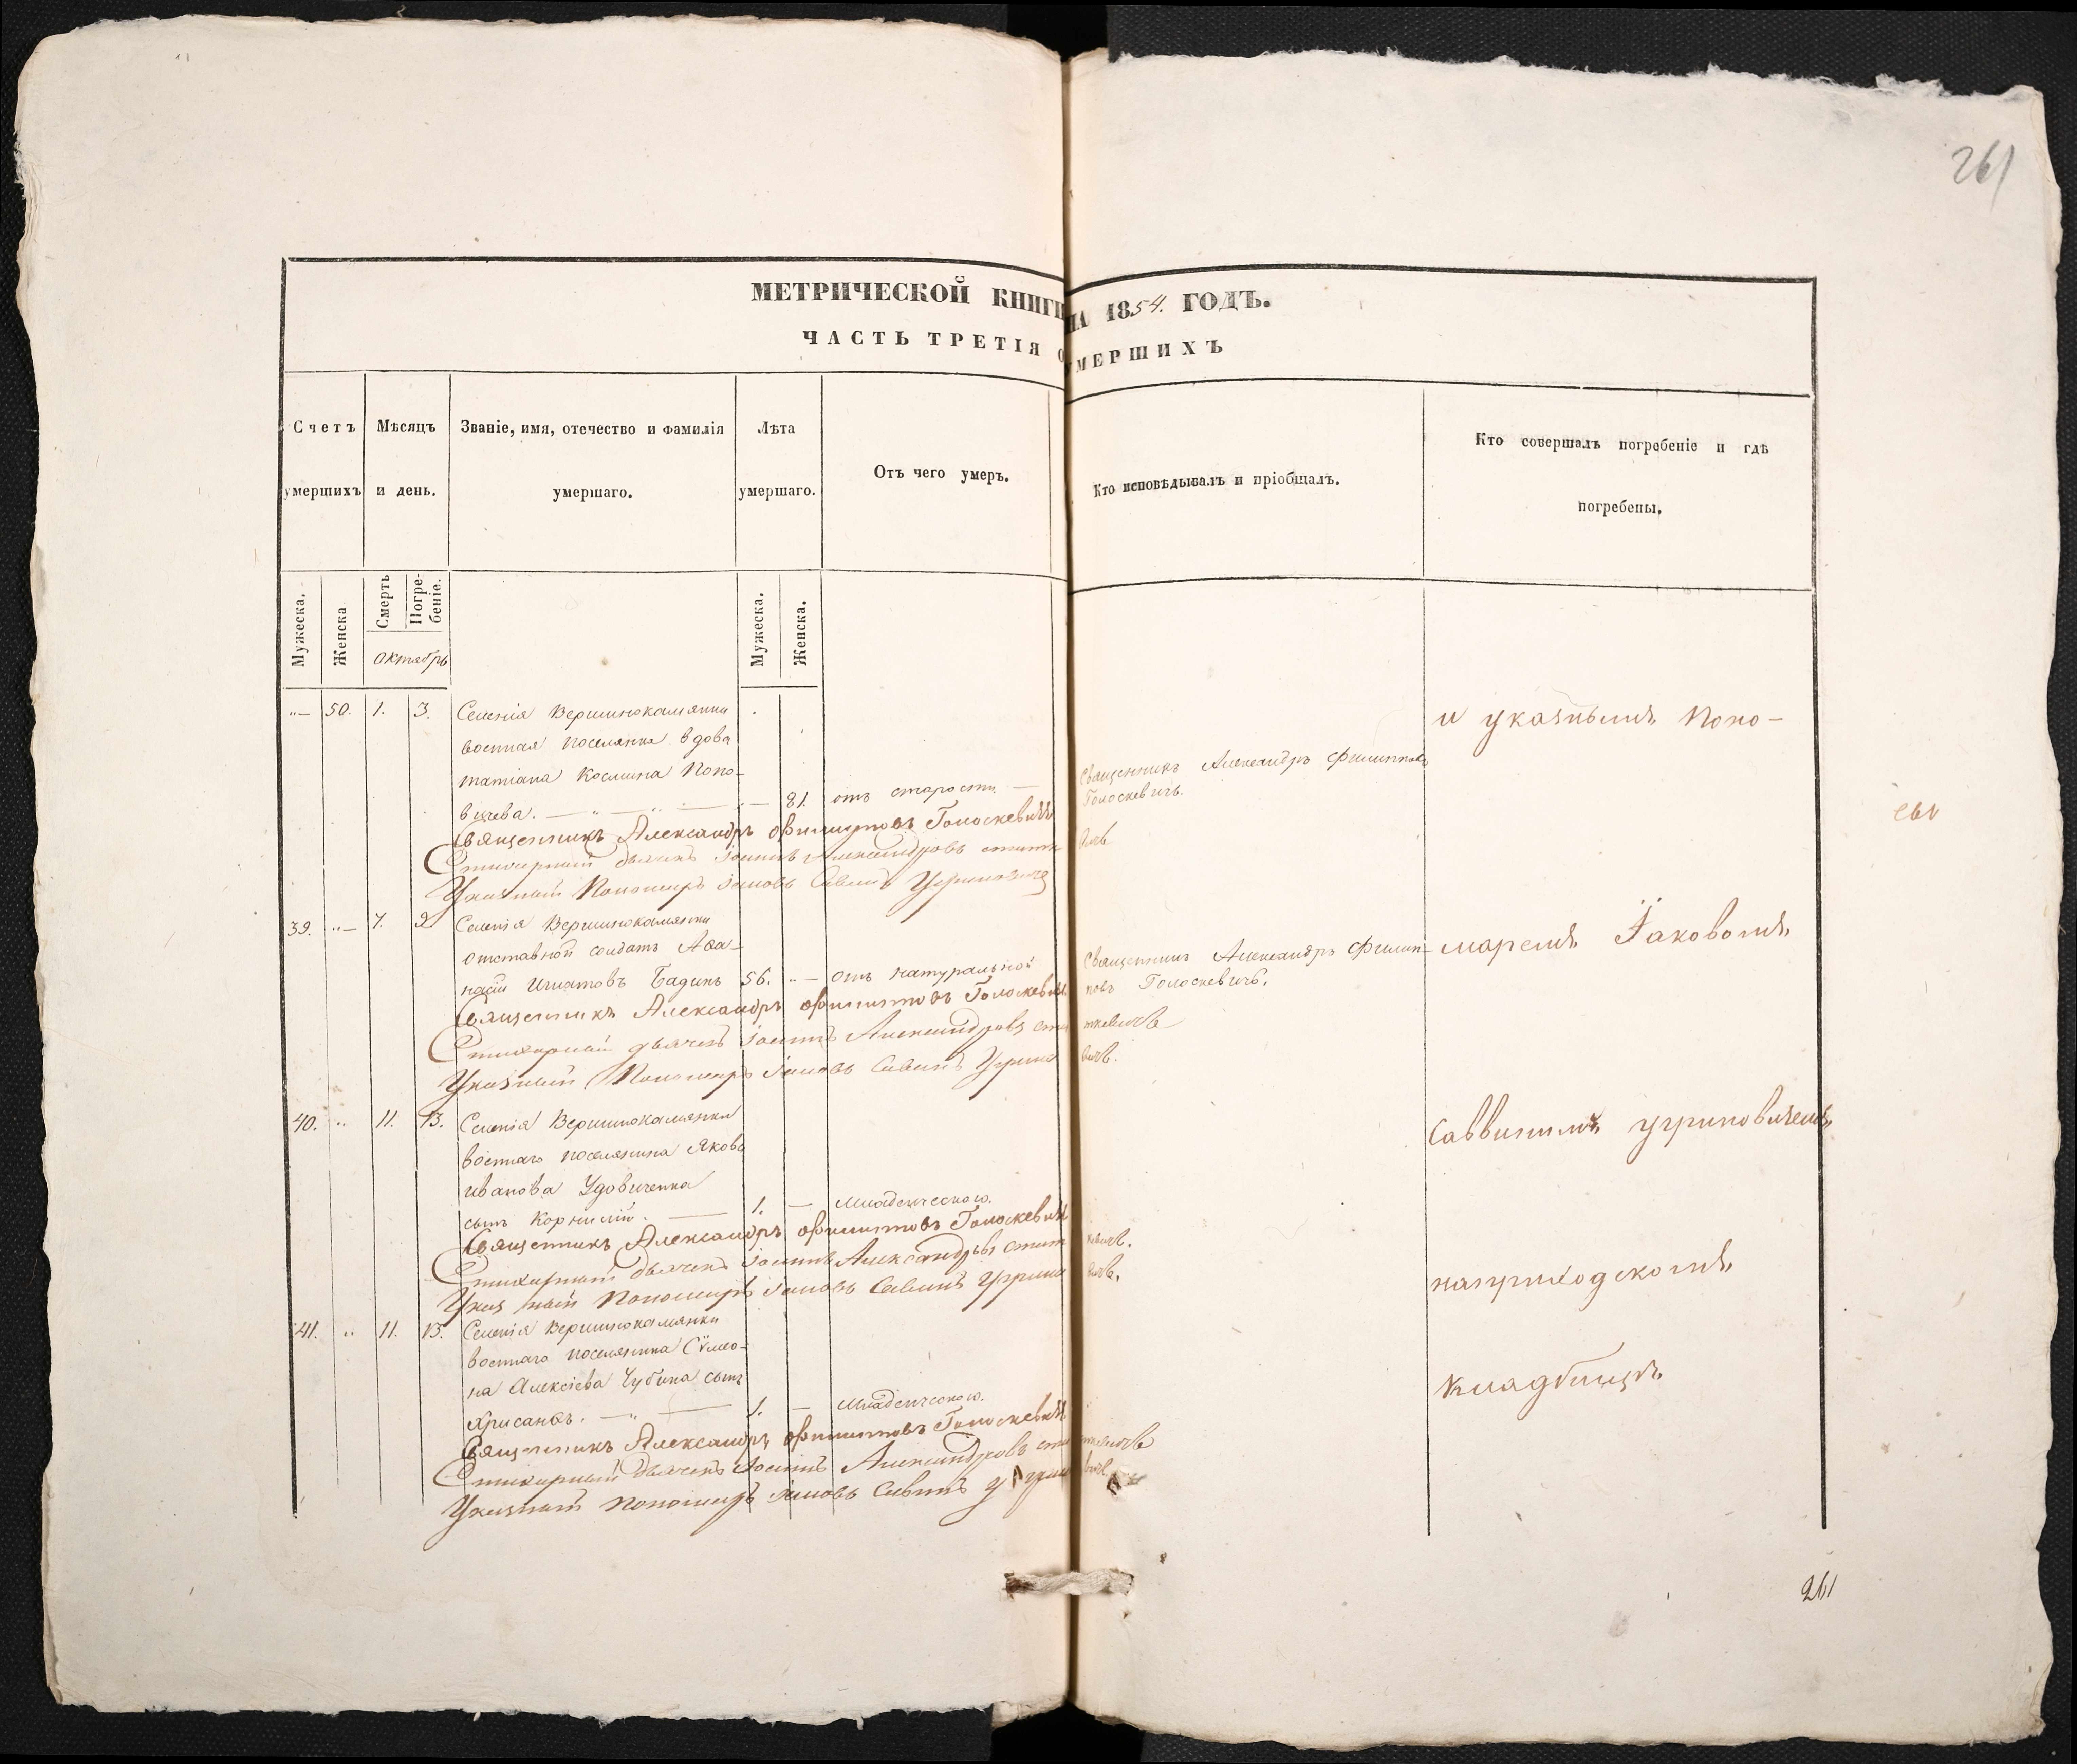 261
МЕТРИЧЕСКОЙ КНИГИ НА 1854. ГОДЪ.
ЧАСТЬ ТРЕТІЯ О УМЕРШИХЪ
Счетъ умершихъ
Мѣсяцъ и день.
Званіе, имя, отечество и фамилія умершаго.
Лѣта умершаго.
Отъ чего умеръ.
Кто исповѣдывалъ и пріобщалъ.
Кто совершалъ погребеніе и гдѣ погребены.
Мужеска.
Женска
Смерть
Погребеніе.
Мужеска.
Женска.
Октябрь
"— 50. 1. 3. Селенія Вершинокамянки
военная поселянка вдова
татіана Космина Попо-
вичева. — " — 81. отъ старости —
Священникъ Александръ Филиповъ
Голоскевичъ.
Священникъ Александръ Филиповъ Голоскевичъ
Стихарный дьячекъ Іоаннъ Александровъ
Указный Пономарь Іаковъ Савинъ Угриновичъ
39. "— 7. 9 Селенія Вершинокамянки
отставной солдатъ Афа-
насій Игнатовъ Бадинъ 56. "— отъ натуральной
Священникъ Александръ Филип-
повъ Голоскевичъ.
Священникъ Александръ Филиповъ Голоскевичъ
Стихарный дьячекъ Іоаннъ Александровъ
Указный Пономарь Іаковъ Савинъ Угриновичъ.
40. " 11. 13. Селенія Вершинокамянки
военнаго поселянина Якова
Иванова Удовиченка
сынъ Корнилій. — 1. — Младенческою.
Священникъ Александръ Филиповъ Голоскевичъ
Стихарный дьячекъ Іоаннъ Александровъ
Указный Пономарь Іаковъ Савинъ Угриновичъ.
41. " 11. 13. Селенія Вершинокамянки
военнаго поселянина Сѵмео-
на Алексіева Чубина сынъ
Хрисанфъ. — " — 1. — Младенческою.
Священникъ Александръ Филиповъ Голоскевичъ
Стихарный дьячекъ Іоаннъ Александровъ
Указный Пономарь Іаковъ Савинъ Угриновичъ
и указнымъ Поно-
маремъ Іаковомъ
Саввинымъ Угриновичемъ
наприходскомъ
кладбищѣ.
261